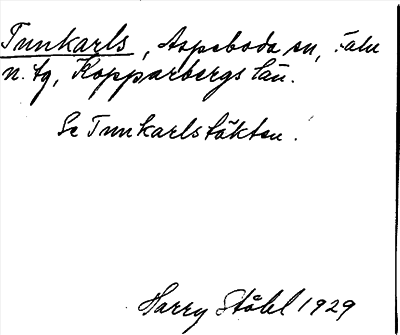 Tunkarls, Aspeboda sn, Falu
n. tg, Kopparbergs län.
Se Tunkarlstäkten.
Harry Ståhl 1929